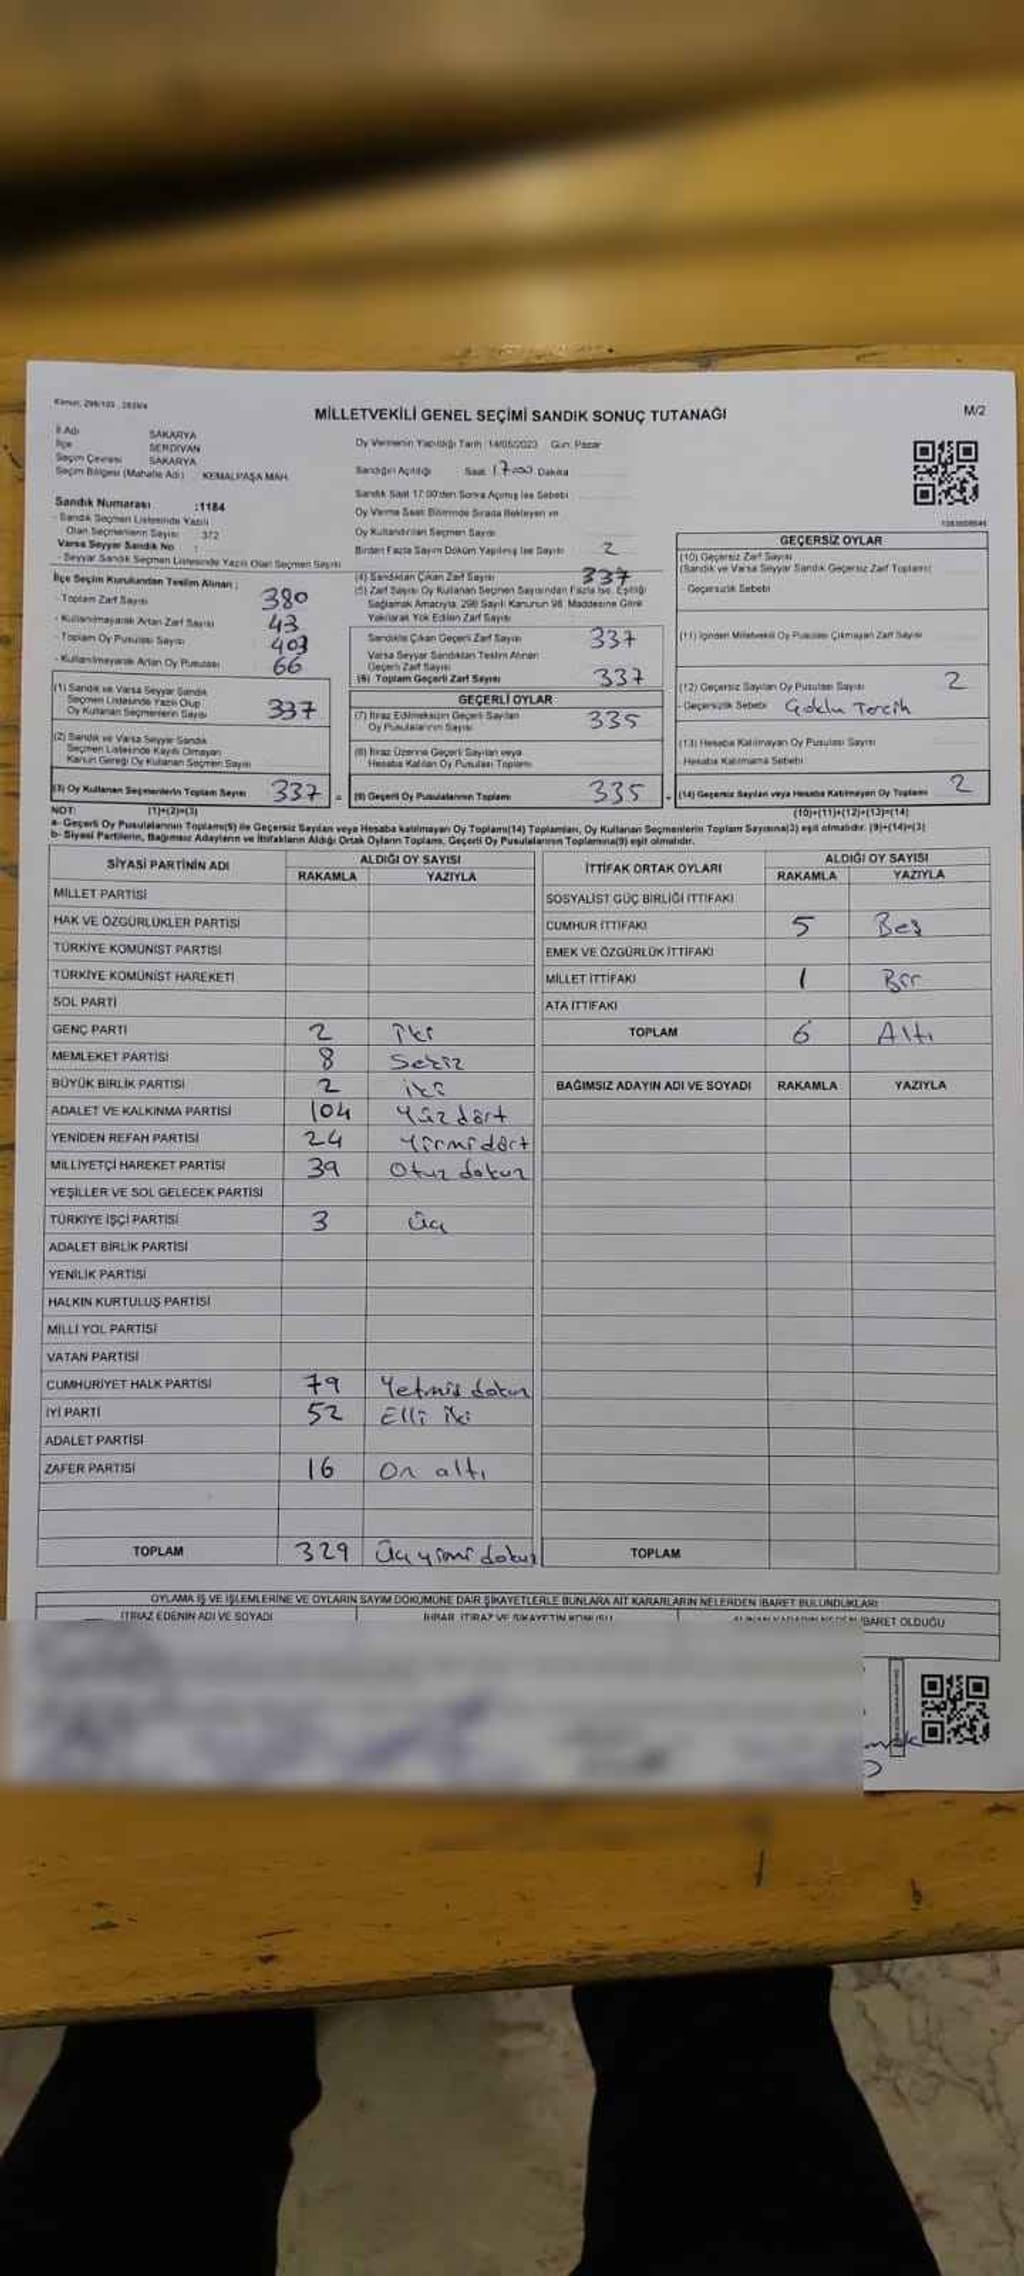 Kanun, 298/103 , 2839/4
MİLLETVEKİLİ GENEL SEÇİMİ SANDIK SONUÇ TUTANAĞI
M/2
İl Adı SAKARYA
İlçe SERDİVAN
Seçim Çevresi SAKARYA
Seçim Bölgesi (Mahalle Adı) : KEMALPAŞA MAH.
Sandık Numarası :1184
- Sandık Seçmen Listesinde Yazılı
Olan Seçmenlerin Sayısı 372
Varsa Seyyar Sandık No :
- Seyyar Sandık Seçmen Listesinde Yazılı Olan Seçmen Sayısı
Oy Vermenin Yapıldığı Tarih :14/05/2023 Gün: Pazar
Sandığın Açıldığı Saat: 17:00 Dakika
Sandık Saat 17.00'den Sonra Açılmış İse Sebebi
Oy Verme Saat Bitiminde Sırada Bekleyen ve
Oy Kullandırılan Seçmen Sayısı
Birden Fazla Sayım Döküm Yapılmış İse Sayısı 2
İlçe Seçim Kurulundan Teslim Alınan ;
- Toplam Zarf Sayısı 380
- Kullanılmayarak Artan Zarf Sayısı 43
- Toplam Oy Pusulası Sayısı 403
- Kullanılmayarak Artan Oy Pusulası 66
(1) Sandık ve Varsa Seyyar Sandık
Seçmen Listesinde Yazılı Olup
Oy Kullanan Seçmenlerin Sayısı 337
(2) Sandık ve Varsa Seyyar Sandık
Seçmen Listesinde Kayıtlı Olmayan
Kanun Gereği Oy Kullanan Seçmen Sayısı
(3) Oy Kullanan Seçmenlerin Toplam Sayısı 337 =
(4) Sandıktan Çıkan Zarf Sayısı 337
(5) Zarf Sayısı Oy Kullanan Seçmen Sayısından Fazla ise, Eşitliği
Sağlamak Amacıyla, 298 Sayılı Kanunun 98. Maddesine Göre
Yakılarak Yok Edilen Zarf Sayısı
Sandıkta Çıkan Geçerli Zarf Sayısı 337
Varsa Seyyar Sandıktan Teslim Alınan
Geçerli Zarf Sayısı
(6) Toplam Geçerli Zarf Sayısı 337
GEÇERLİ OYLAR
(7) İtiraz Edilmeksizin Geçerli Sayılan
Oy Pusulalarının Sayısı 335
(8) İtiraz Üzerine Geçerli Sayılan veya
Hesaba Katılan Oy Pusulası Toplamı
(9) Geçerli Oy Pusulalarının Toplamı 335 +
GEÇERSİZ OYLAR
(10) Geçersiz Zarf Sayısı
(Sandık ve Varsa Seyyar Sandık Geçersiz Zarf Toplamı)
Geçersizlik Sebebi
(11) İçinden Milletvekili Oy Pusulası Çıkmayan Zarf Sayısı
(12) Geçersiz Sayılan Oy Pusulası Sayısı 2
- Geçersizlik Sebebi Çoklu Tercih
(13) Hesaba Katılmayan Oy Pusulası Sayısı
Hesaba Katılmama Sebebi
(14) Geçersiz Sayılan veya Hesaba Katılmayan Oy Toplamı 2
NOT: (1)+(2)=(3) (10)+(11)+(12)+(13)=(14)
a- Geçerli Oy Pusulalarının Toplamı(9) ile Geçersiz Sayılan veya Hesaba katılmayan Oy Toplamı(14) Toplamları, Oy Kullanan Seçmenlerin Toplam Sayısına(3) eşit olmalıdır. (9)+(14)=(3)
b- Siyasi Partilerin, Bağımsız Adayların ve İttifakların Aldığı Ortak Oyların Toplamı, Geçerli Oy Pusulalarının Toplamına(9) eşit olmalıdır.
SİYASİ PARTİNİN ADI ALDIĞI OY SAYISI
RAKAMLA YAZIYLA
MİLLET PARTİSİ
HAK VE ÖZGÜRLÜKLER PARTİSİ
TÜRKİYE KOMÜNİST PARTİSİ
TÜRKİYE KOMÜNİST HAREKETİ
SOL PARTİ
GENÇ PARTİ 2 İki
MEMLEKET PARTİSİ 8 Sekiz
BÜYÜK BİRLİK PARTİSİ 2 iki
ADALET VE KALKINMA PARTİSİ 104 Yüz dört
YENİDEN REFAH PARTİSİ 24 Yirmi dört
MİLLİYETÇİ HAREKET PARTİSİ 39 Otuz dokuz
YEŞİLLER VE SOL GELECEK PARTİSİ
TÜRKİYE İŞÇİ PARTİSİ 3 Üç
ADALET BİRLİK PARTİSİ
YENİLİK PARTİSİ
HALKIN KURTULUŞ PARTİSİ
MİLLİ YOL PARTİSİ
VATAN PARTİSİ
CUMHURİYET HALK PARTİSİ 79 Yetmiş dokuz
İYİ PARTİ 52 Elli iki
ADALET PARTİSİ
ZAFER PARTİSİ 16 On altı
TOPLAM 329 Üç yirmi dokuz
İTTİFAK ORTAK OYLARI ALDIĞI OY SAYISI
RAKAMLA YAZIYLA
SOSYALİST GÜÇ BİRLİĞİ İTTİFAKI
CUMHUR İTTİFAKI 5 Beş
EMEK VE ÖZGÜRLÜK İTTİFAKI
MİLLET İTTİFAKI 1 Bir
ATA İTTİFAKI
TOPLAM 6 Altı
BAĞIMSIZ ADAYIN ADI VE SOYADI RAKAMLA YAZIYLA
TOPLAM
OYLAMA İŞ VE İŞLEMLERİNE VE OYLARIN SAYIM DÖKÜMÜNE DAİR ŞİKAYETLERLE BUNLARA AİT KARARLARIN NELERDEN İBARET BULUNDUKLARI
İTİRAZ EDENİN ADI VE SOYADI İHBAR, İTİRAZ VE ŞİKAYETİN KONUSU ALINAN KARARIN NEDEN İBARET OLDUĞU